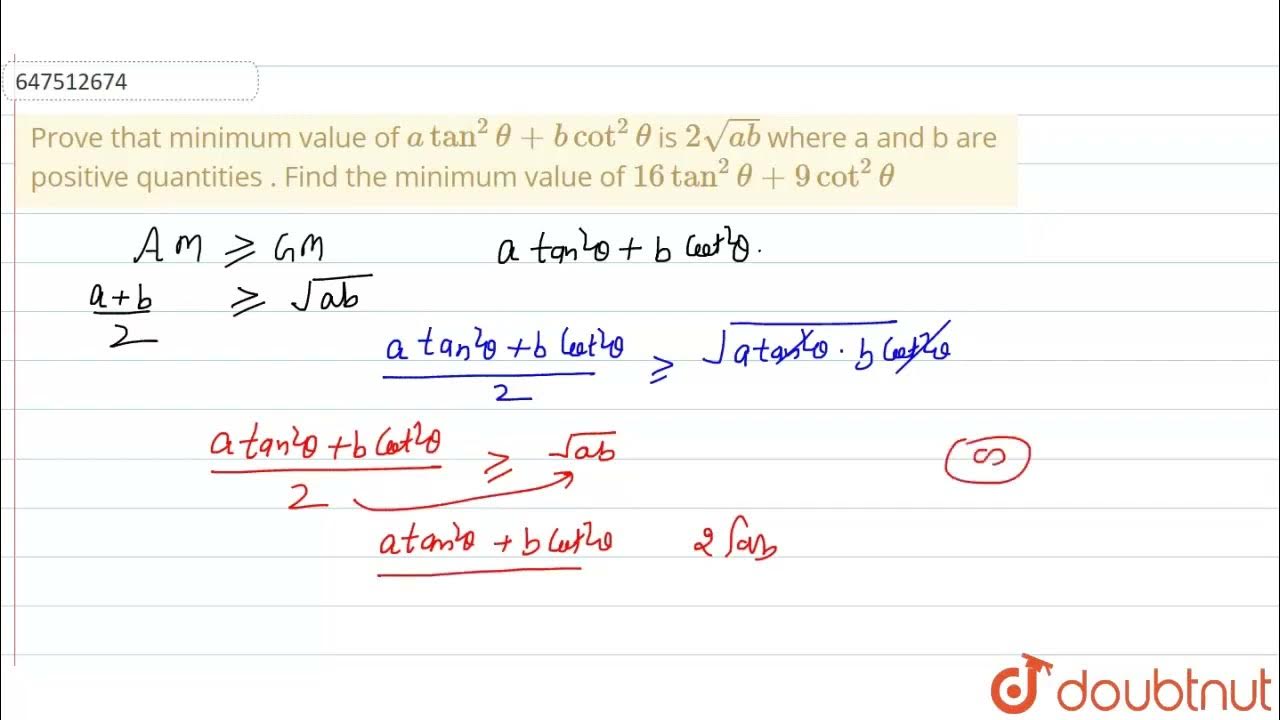 647512674
Prove that minimum value of a tan² θ + b cot² θ is 2√ab where a and b are
positive quantities . Find the minimum value of 16 tan² θ + 9 cot² θ
AM ⩾ GM a tan²θ + b cot²θ.
a+b/2 ⩾ √ab
a tan²θ + b cot²θ/2 ⩾ √a tan²θ · b cot²θ
a tan²θ + b cot²θ/2 ⩾ √ab
a tan²θ + b cot²θ 2√ab
doubtnut